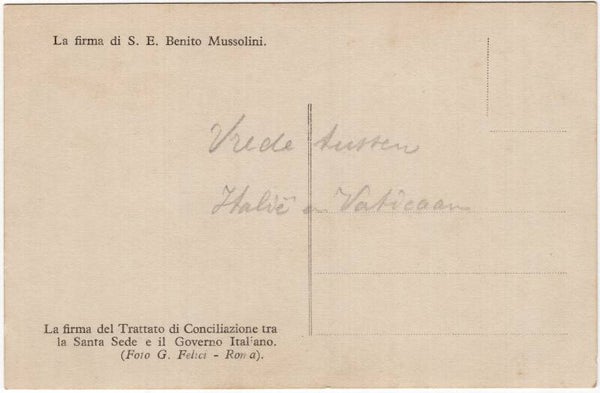 La firma di S. E. Benito Mussolini.
Vrede tussen
Italië en Vaticaan
La firma del Trattato di Conciliazione tra
la Santa Sede e il Governo Italiano.
(Foto G. Felici - Roma).